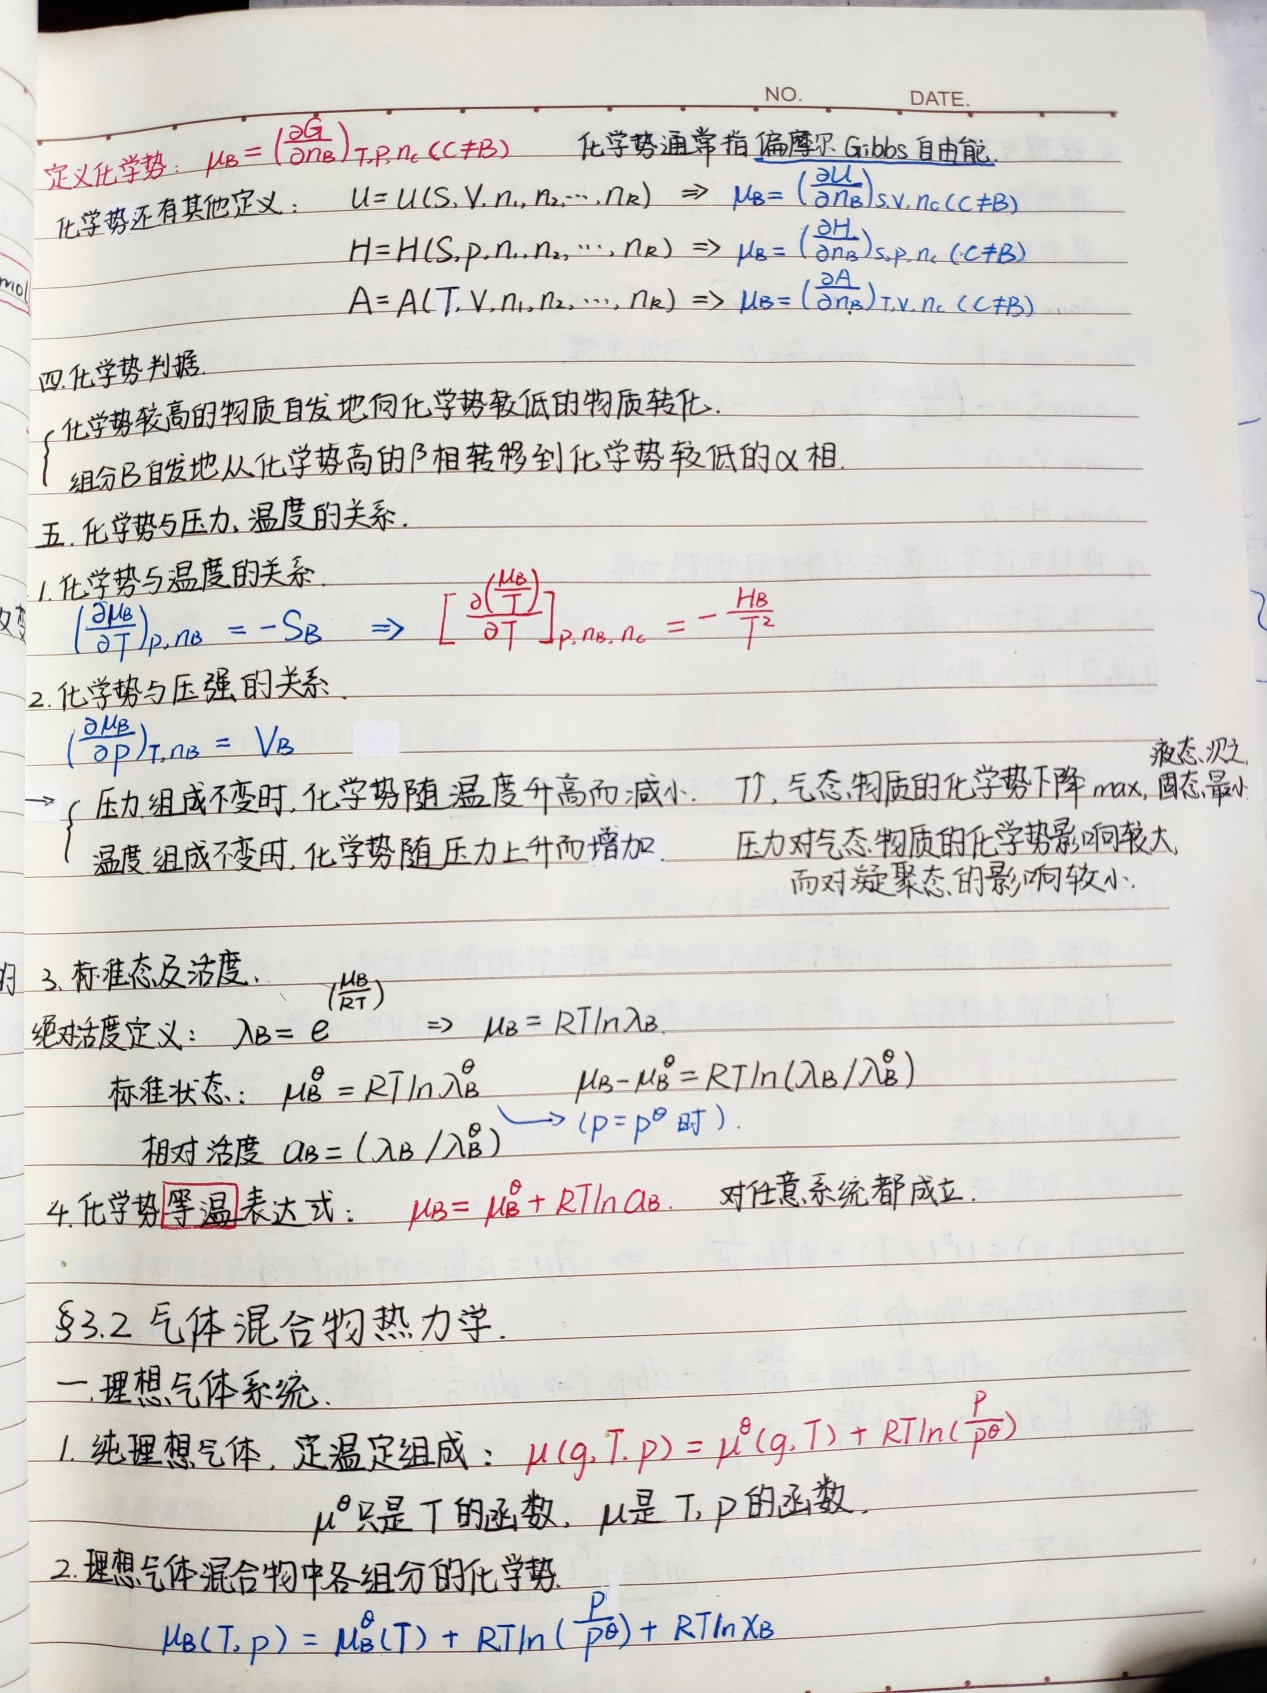 NO. DATE.
定义化学势: μB = (∂G/∂nB)T,P,nc (C≠B) 化学势通常指偏摩尔 Gibbs 自由能.
化学势还有其他定义: U = U(S,V,n₁,n₂,…,nR) ⇒ μB = (∂U/∂nB)S,V,nc (C≠B)
H = H(S,p,n₁,n₂,…,nR) ⇒ μB = (∂H/∂nB)S,p,nc (C≠B)
A = A(T,V,n₁,n₂,…,nR) ⇒ μB = (∂A/∂nB)T,V,nc (C≠B)
mol
四.化学势判据.
化学势较高的物质自发地向化学势较低的物质转化.
组分B自发地从化学势高的β相转移到化学势较低的α相.
五.化学势与压力、温度的关系.
1.化学势与温度的关系.
(∂μB/∂T)p,nB = -SB ⇒ [∂(μB/T)/∂T]p,nB,nc = - HB/T²
2.化学势与压强的关系.
(∂μB/∂p)T,nB = VB
→ 压力.组成不变时,化学势随温度升高而减小. T↑,气态物质的化学势下降max, 液态次之, 固态最小.
温度.组成不变时,化学势随压力上升而增加. 压力对气态物质的化学势影响较大,
而对凝聚态的影响较小.
的
3.标准态及活度.
绝对活度定义: λB = e^(μB/RT) ⇒ μB = RTlnλB.
标准状态: μB^θ = RTlnλB^θ μB-μB^θ = RTln(λB/λB^θ)
→ (p=p^θ时).
相对活度 aB = (λB/λB^θ)
4.化学势等温表达式: μB = μB^θ + RTln aB. 对任意系统都成立.
§3.2 气体混合物热力学.
一.理想气体系统.
1.纯理想气体,定温定组成: μ(g,T,p) = μ^θ(g,T) + RTln(P/P^θ)
μ^θ只是T的函数, μ是T,p的函数.
2.理想气体混合物中各组分的化学势.
μB(T,p) = μB^θ(T) + RTln(P/P^θ) + RTlnχB